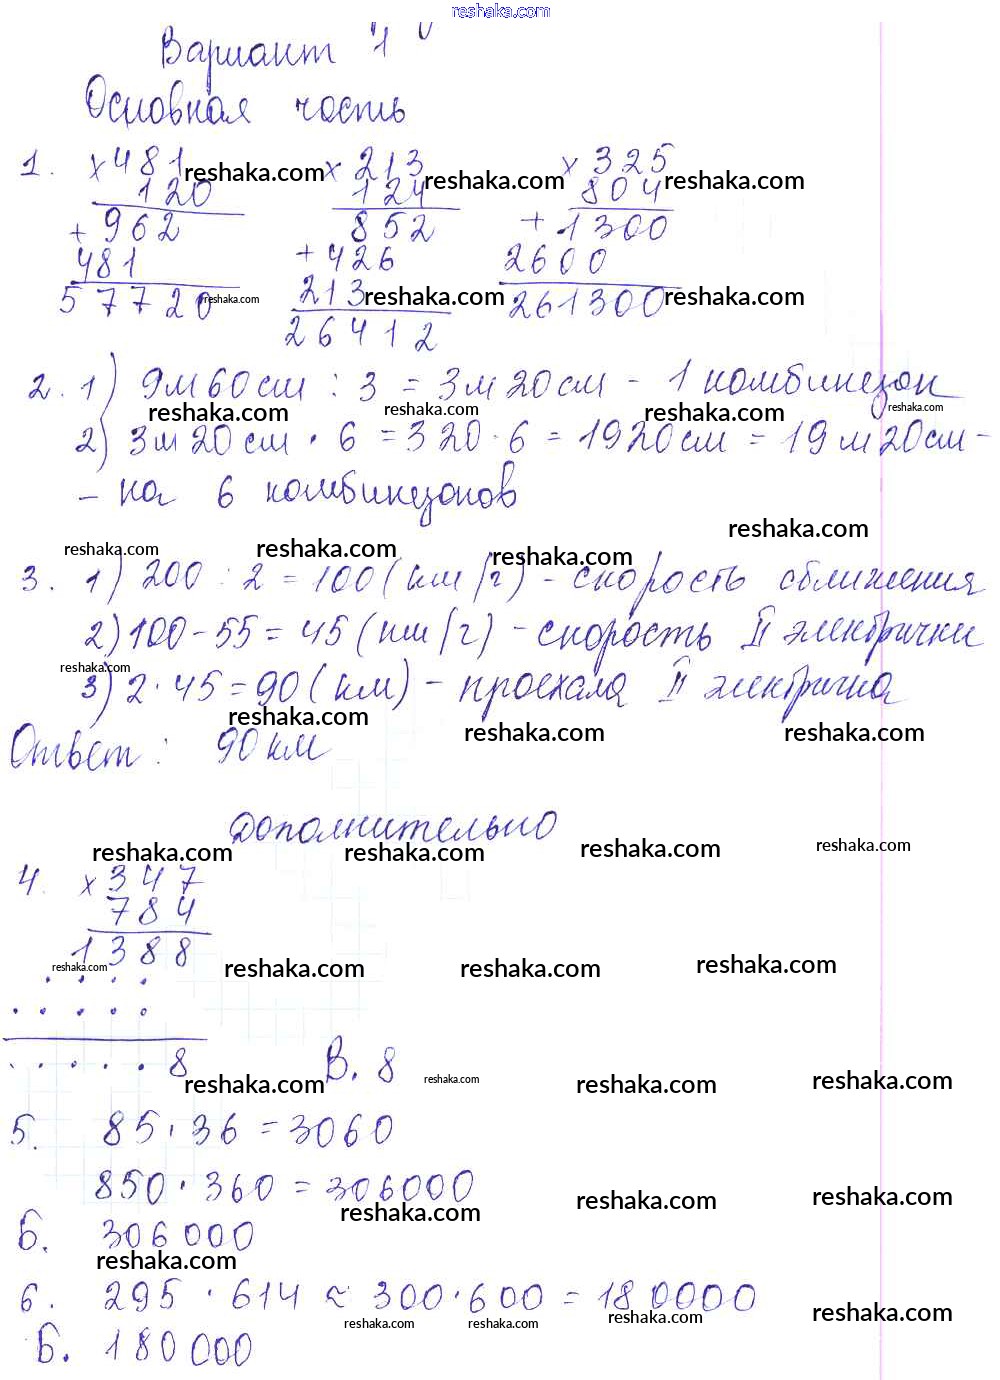 reshaka.com
Вариант "1"
Основная часть
1. ×481 ×213 ×325
reshaka.com reshaka.com reshaka.com
120 124 804
+962 852 +1300
481 +426 2600
57720 213 261300
reshaka.com reshaka.com reshaka.com
26412
2. 1) 9м 60см : 3 = 3м 20см - 1 комбинезон
reshaka.com reshaka.com reshaka.com reshaka.com
2) 3м 20см · 6 = 320 · 6 = 1920см = 19м 20см -
- на 6 комбинезонов
reshaka.com
reshaka.com reshaka.com reshaka.com
3. 1) 200 : 2 = 100 (км/г) - скорость сближения
2) 100 - 55 = 45 (км/г) - скорость II электрички
reshaka.com
3) 2 · 45 = 90 (км) - проехала II электричка
reshaka.com reshaka.com reshaka.com
Ответ: 90 км
Дополнительно
reshaka.com reshaka.com reshaka.com reshaka.com
4. ×347
784
1388
reshaka.com reshaka.com reshaka.com reshaka.com
. . . .
. . . . .
. . . . . 8 В. 8
reshaka.com reshaka.com reshaka.com reshaka.com
5. 85 · 36 = 3060
850 · 360 = 306000
reshaka.com reshaka.com reshaka.com
Б. 306000
reshaka.com
6. 295 · 614 ≈ 300 · 600 = 180000
reshaka.com reshaka.com reshaka.com reshaka.com
Б. 180000